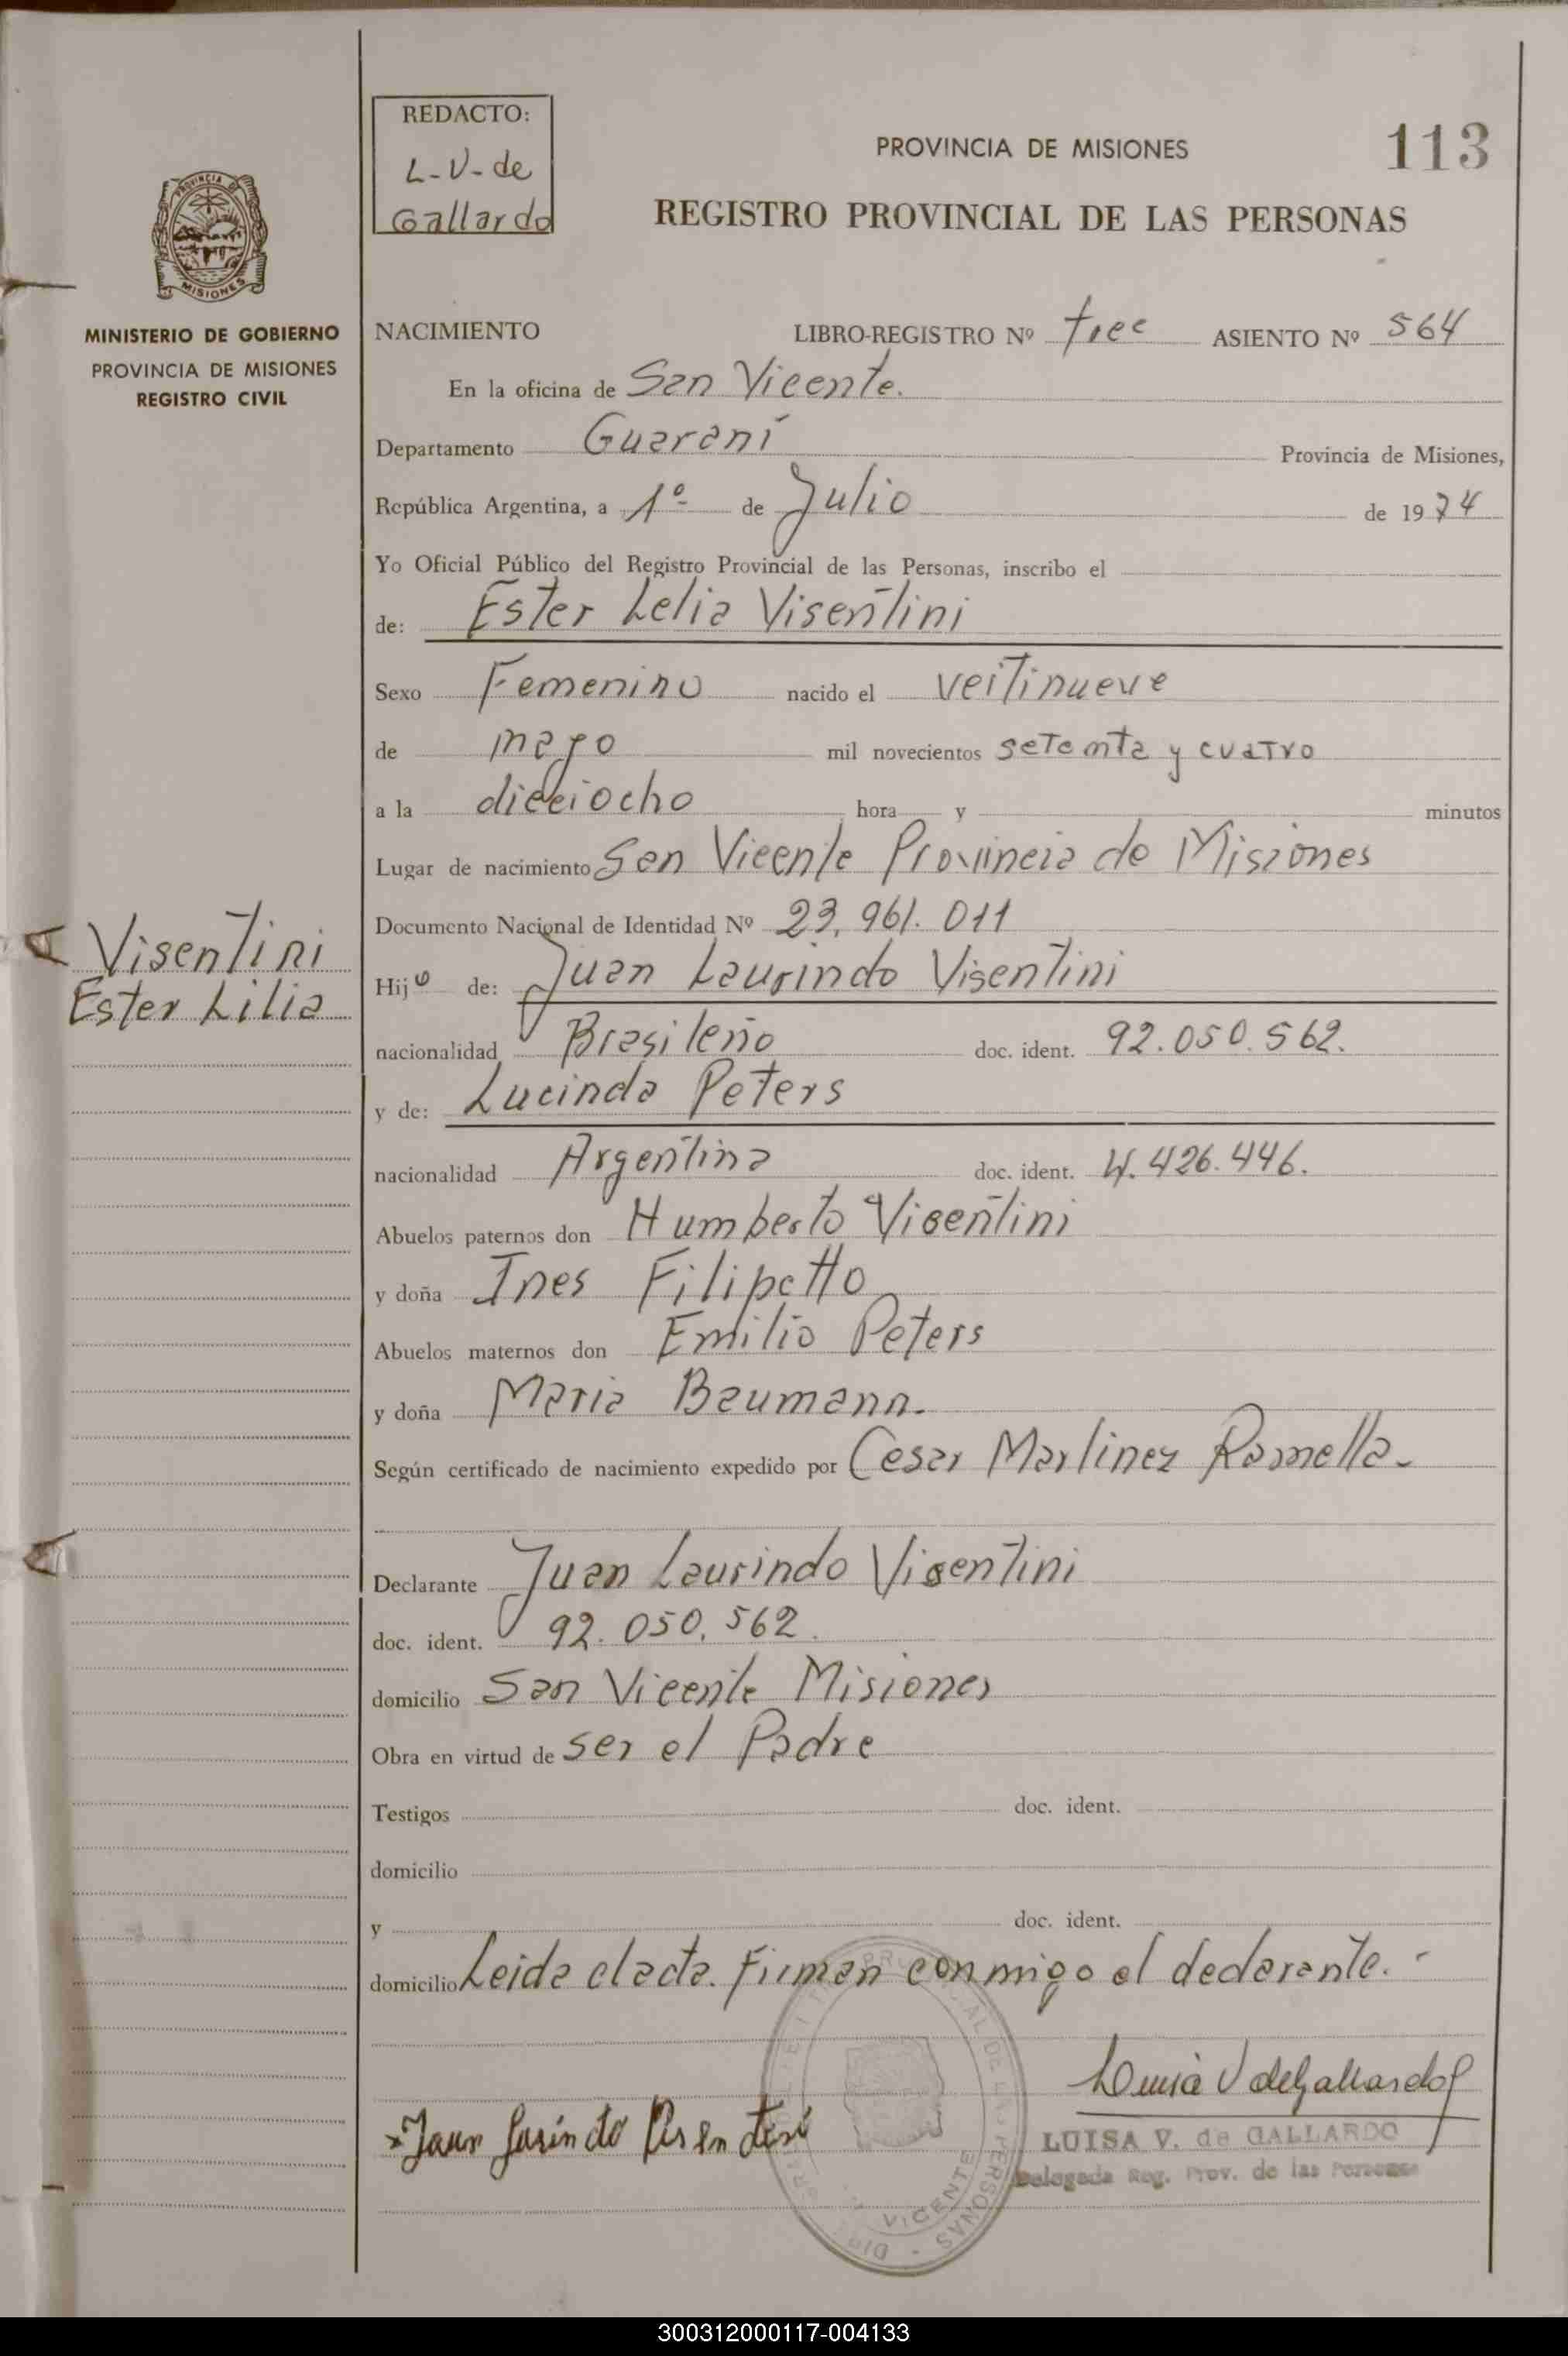 REDACTO:
L-V-de
Gallardo
PROVINCIA DE MISIONES
113
REGISTRO PROVINCIAL DE LAS PERSONAS
PROVINCIA DE
MISIONES
MINISTERIO DE GOBIERNO
PROVINCIA DE MISIONES
REGISTRO CIVIL
NACIMIENTO LIBRO-REGISTRO Nº trec ASIENTO Nº 564
En la oficina de San Vicente.
Departamento Guaraní Provincia de Misiones,
República Argentina, a 1º de Julio de 1974
Yo Oficial Público del Registro Provincial de las Personas, inscribo el
de: Ester Lelia Visentini
Sexo Femenino nacido el veitinueve
de mayo mil novecientos setenta y cuatro
a la dieciocho hora y minutos
Lugar de nacimiento San Vicente Provincia de Misiones
Documento Nacional de Identidad Nº 23.961.011
Visentini
Ester Lilia
Hij de: Juan Laurindo Visentini
nacionalidad Brasileño doc. ident. 92.050.562.
y de: Lucinda Peters
nacionalidad Argentina doc. ident. 4.426.446.
Abuelos paternos don Humberto Visentini
y doña Ines Filipetto
Abuelos maternos don Emilio Peters
y doña Maria Baumann.
Según certificado de nacimiento expedido por Cesar Martinez Ramella-
Declarante Juan Laurindo Visentini
doc. ident. 92.050.562.
domicilio San Vicente Misiones
Obra en virtud de ser el Padre
Testigos doc. ident.
domicilio
y doc. ident.
domicilio Leida el acta. Firman conmigo el declarante.-
Luisa V de Gallardo
LUISA V. de GALLARDO
Delegada Reg. Prov. de las Personas
VICENTE
300312000117-004133